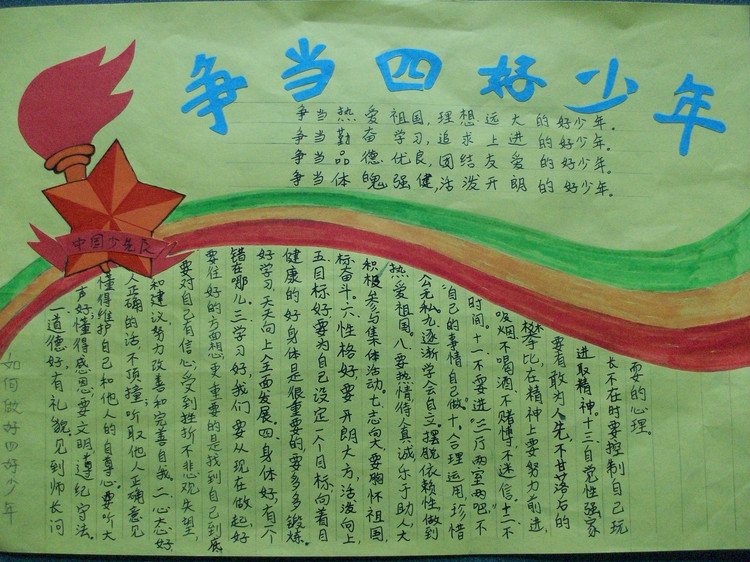 争当四好少年
争当热爱祖国,理想远大的好少年。
争当勤奋学习,追求上进的好少年。
争当品德优良,团结友爱的好少年。
争当体魄强健,活泼开朗的好少年。
中国少先队
如何做好四好少年
一道德好,有礼貌见到师长问
声好;懂得感恩;要文明,遵纪守法。
懂得维护自己和他人的自尊心;要听大
人正确的话,不顶撞;听取他人正确意见
和建议,努力改善和完善自我。二心态好
要对自己有信心,受到挫折不悲观失望
要往好的方面想,更重要的是找到自己到底
错在哪儿。三学习好,我们要从现在做起,好
好学习天天向上全面发展。四、身体好,有个
健康的好身体是很重要的,要多多锻炼。
五、目标好,要为自己设定一个目标向着目
标奋斗。六性格好,要开朗大方,活泼向上,
积极参与集体活动。七志向大要胸怀祖国,
热爱祖国。八、要热情待人真诚乐于助人,大
公无私。九逐渐学会自立,摆脱依赖性,做到
“自己的事情自己做”十、合理运用珍惜
时间。十一不要进“三厅两室两吧”不
吸烟不喝酒不赌博,不迷信,十二不
攀比,在精神上要努力前进,
要有敢为人先不甘落后的
进取精神。十三自觉性强家
长不在时要控制自己玩
耍的心理。